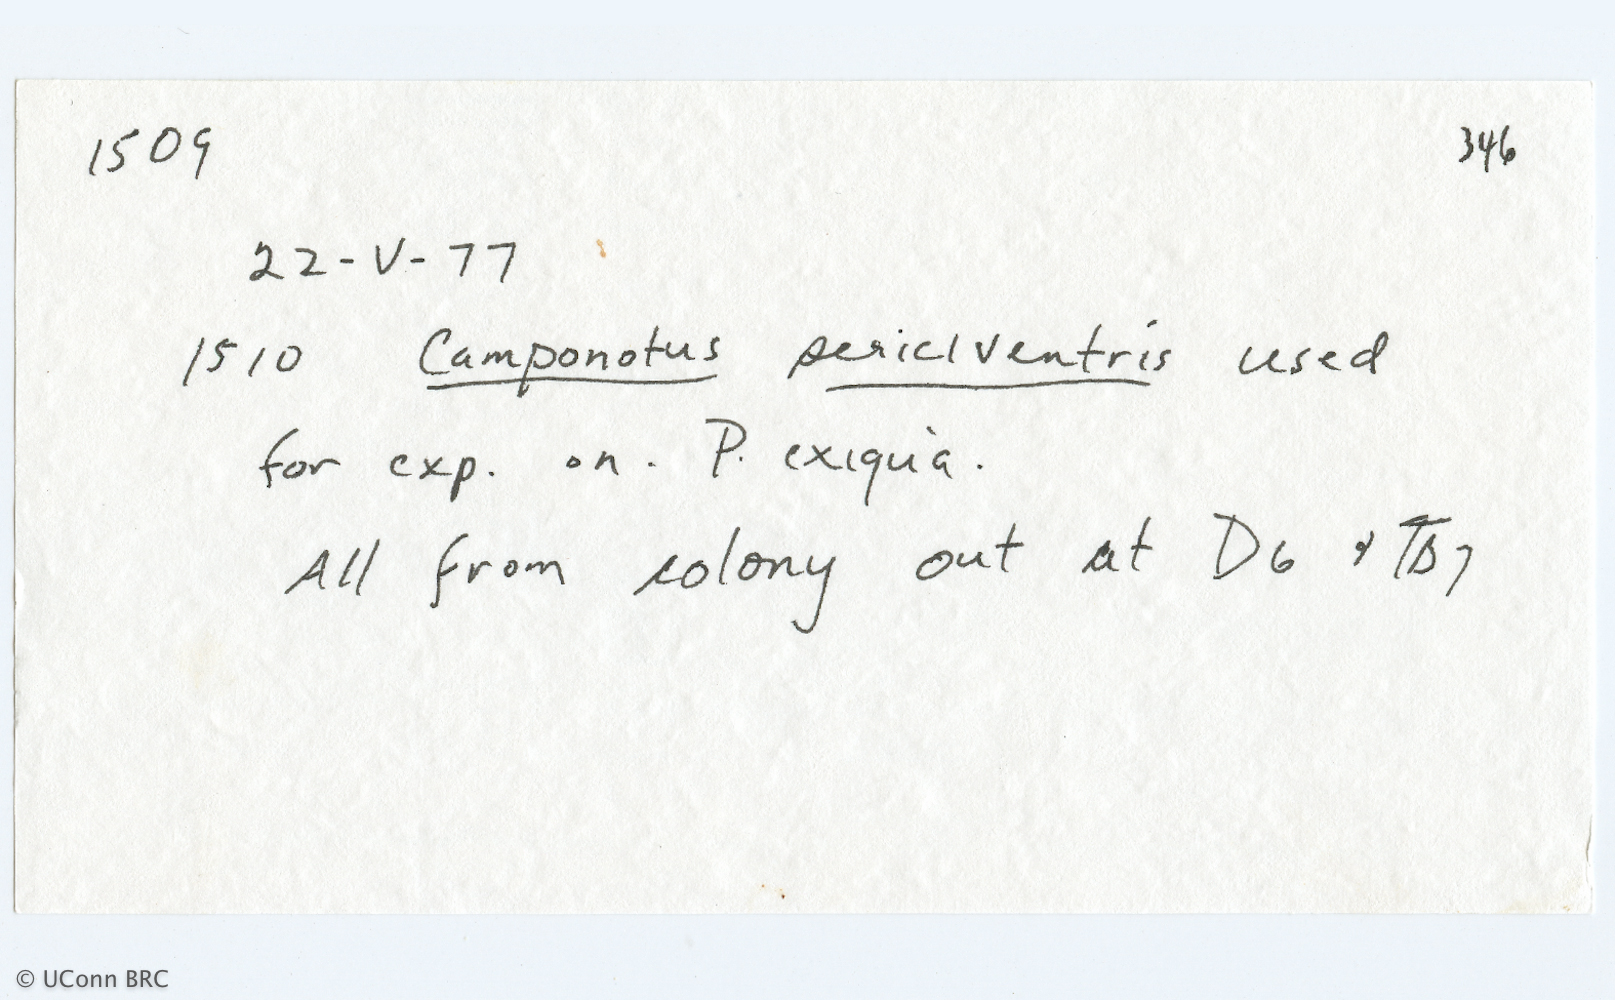 1509 346
22-V-77
1510 Camponotus sericiventris used
for exp. on. P. exiquia.
All from colony out at D6 & TB7
© UConn BRC